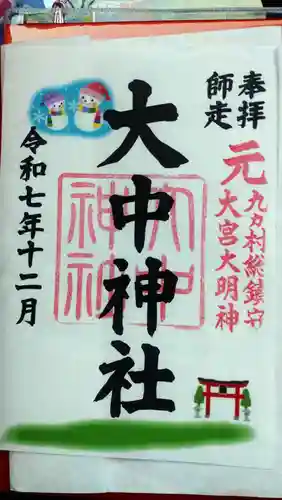 奉拝
師走
元 九カ村総鎮守
大宮大明神
大中神社
大中神社
令和七年十二月